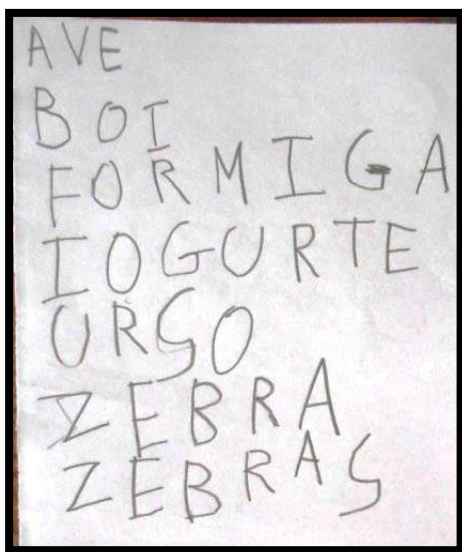 AVE
BOI
FORMIGA
IOGURTE
URSO
ZEBRA
ZEBRAS